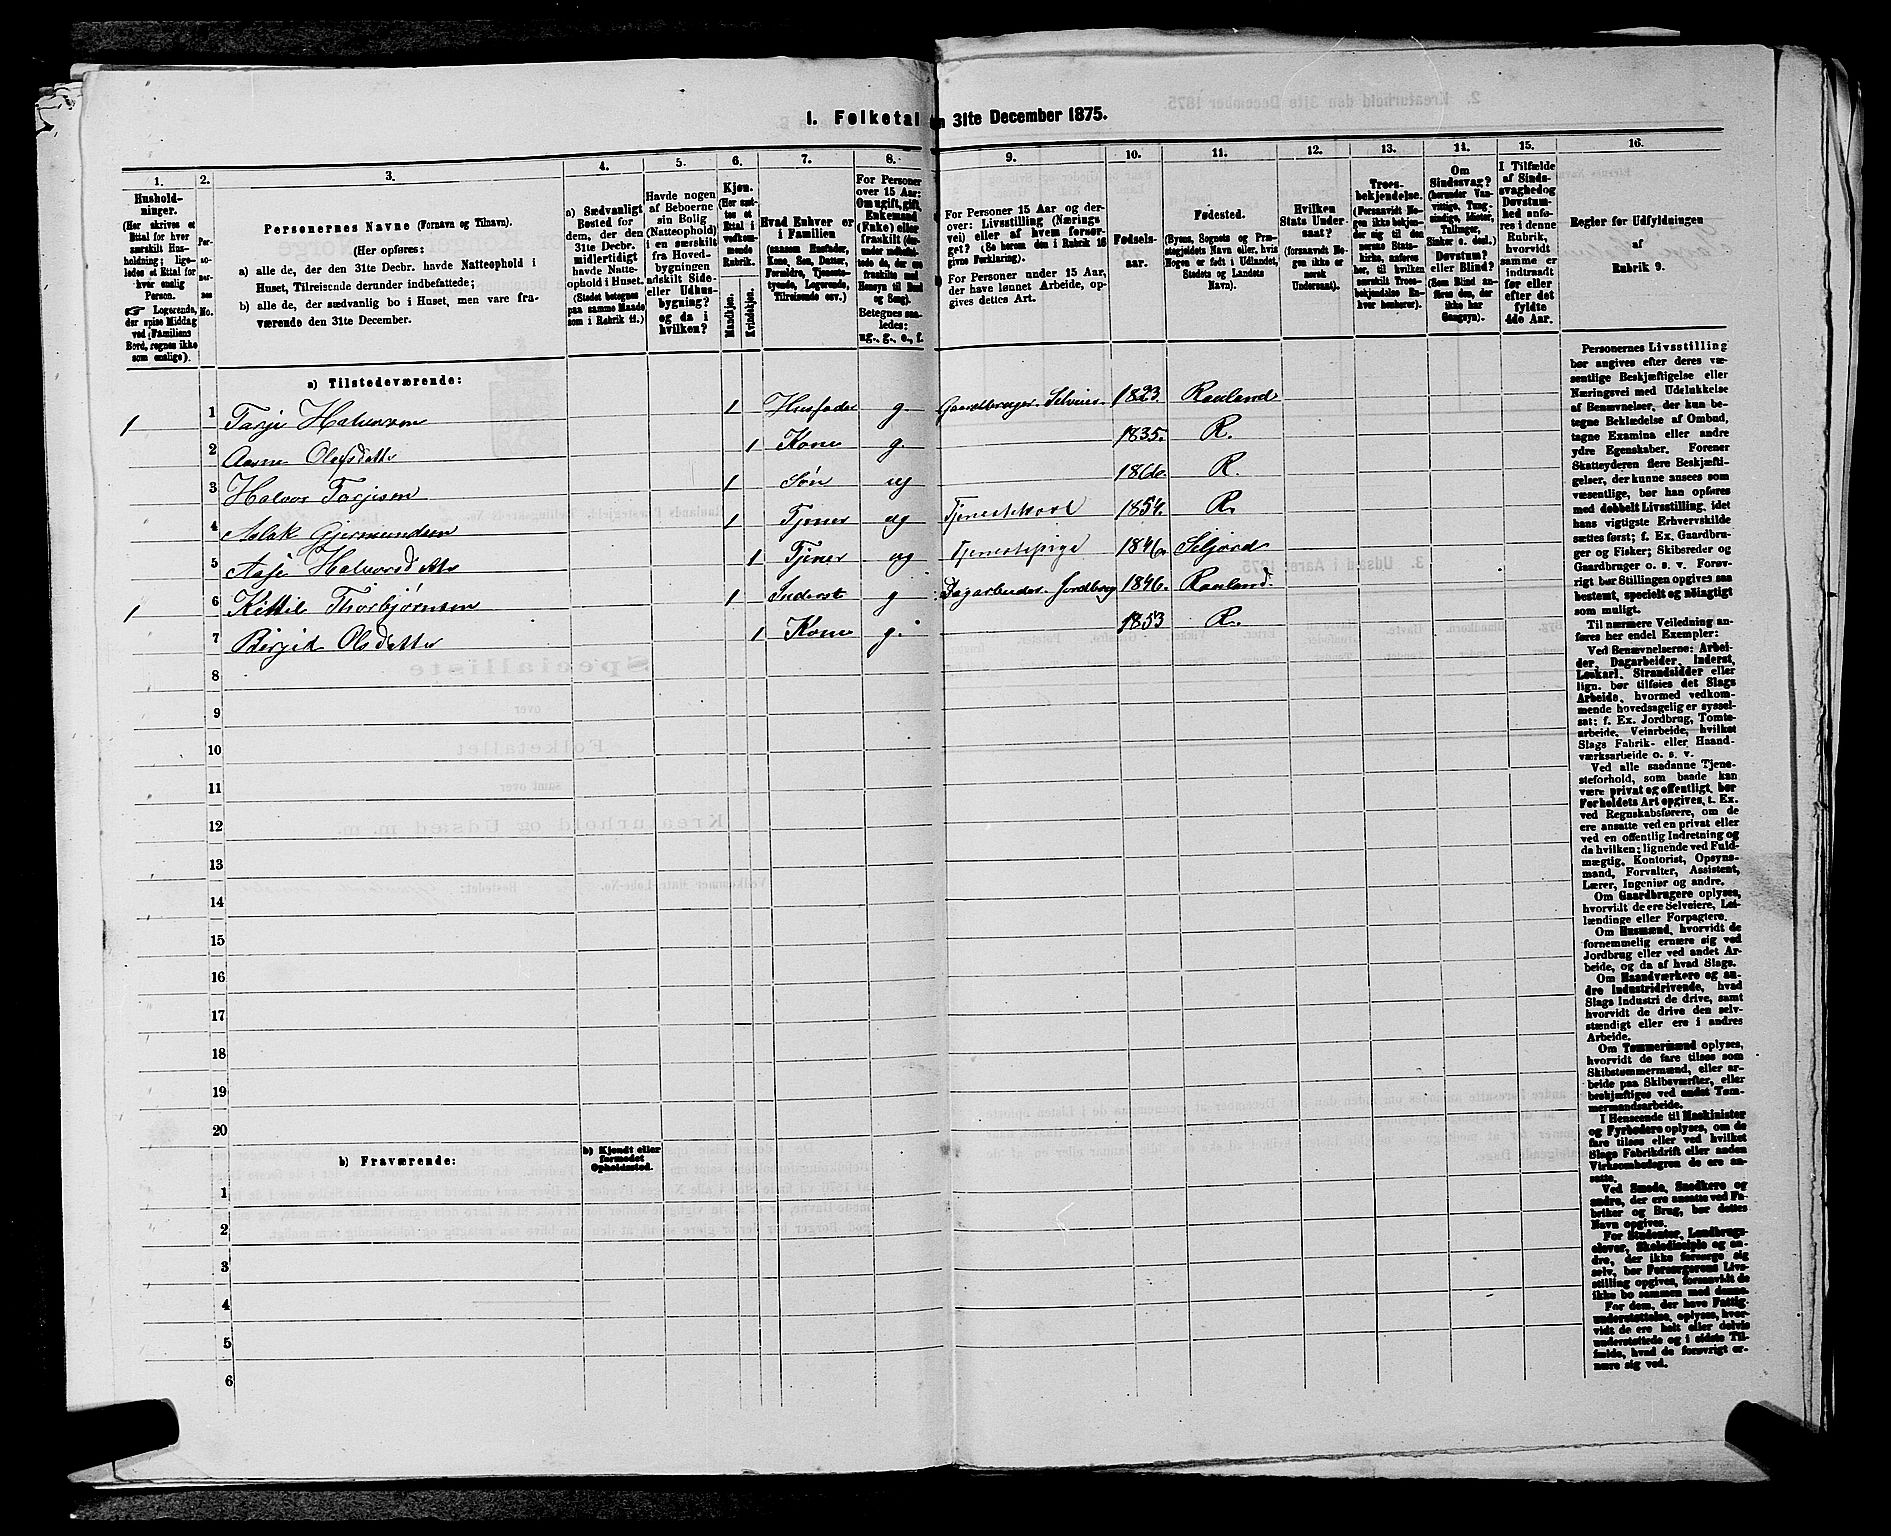 I. Folketal den 31te December 1875.
1. 2. 3. 4. 5. 6. 7. 8. 9. 10. 11. 12. 13. 14. 15. 16.
Husholdninger.
(Her skrives et Ettal for hver særskilt Husholdning; ligeledes et Ettal for hver enslig Person.
☞ Logerende, der spise Middag ved Familiens Bord, regnes ikke som enslige).
Personernes No.
Personernes Navne (Fornavn og Tilnavn).
(Her opføres:
a) alle de, der den 31te Decbr. havde Natteophold i Huset, Tilreisende derunder indbefattede;
b) alle de, der sædvanlig bo i Huset, men vare fraværende den 31te December.
a) Sædvanligt Bosted for dem, der den 31te Decbr. midlertidigt havde Natteophold i Huset. (Stedet betegnes paa samme Maade som i Rubrik 11.)
Havde nogen af Beboerne sin Bolig (Natteophold) i en særskilt fra Hovedbygningen adskilt Side- eller Udhusbygning? og da i hvilken?
Kjøn. (Her sættes et Ettal i vedkommende Rubrik.
Mandkjøn.
Kvindekjøn.
Hvad Enhver er i Familien (saasom Husfader, Kone, Søn, Datter, Forældre, Tjenestetyende, Logerende, Tilreisende osv.)
For Personer over 15 Aar: Om ugift, gift, Enkemand (Enke) eller fraskilt
Betegnes saaledes: ug., g., e., f.
For Personer 15 Aar og derover: Livsstilling (Næringsvei) eller af hvem forsørget? (Se herom den i Rubrik 16 givne Forklaring).
For Personer under 15 Aar, der have lønnet Arbeide, opgives dettes Art.
Fødselsaar.
Fødested.
(Byens, Sognets og Præstegjeldets Navn eller, hvis Nogen er født i Udlandet, Stedets og Landets Navn).
Hvilken Stats Undersaat? (forsaavidt Nogen ikke er norsk Undersaat).
Troesbekjendelse. (Forsaavidt Nogen ikke bekjender sig til den norske Statskirke, anføres her, til hvilken særskilt Troesbekjendelse Enhver henhører).
Om Sindssvag? (herunder Vanvittige, Tungsindige, Idioter, Tullinger, Sinker o. desl.) Døvstum? eller Blind? (Som Blind anføres den, der ikke har Gangsyn).
I Tilfælde af Sindssvaghed og Døvstumhed anføres i denne Rubrik, hvorvidt samme er indtraadt før eller efter det fyldte 4de Aar.
Regler for Udfyldningen af Rubrik 9.
a) Tilstedeværende:
1 1 Tarje Halvorsen 1 Husfader g. Gaardbruger Selveier 1823. Rauland
2 Aasne Olefsdatter 1 Kone g 1835. R.
3 Halvor Tarjesen 1 Søn ug 1860. R.
4 Aslak Gjermundsen 1 Tjener ug Tjenestekarl 1854. R.
5 Aase Halvorsdatter 1 Tjener ug Tjenestepige 1846. Seljord
1 6 Kittil Thorbjørnsen 1 Inderst g Dagarbeider Jordbrug 1846. Rauland.
7 Birgit Olsdatter 1 Kone g. 1853 R.
8
9
10
11
12
13
14
15
16
17
18
19
20
b) Fraværende:
b) Kjendt eller formodet Opholdssted.
1
2
3
4
5
6
Personernes Livsstilling
bør angives efter deres væ-
sentlige Beskjæftigelse eller
Næringsvei med Udelukkelse
af Benævnelser, der kun be-
tegne Beklædelse af Ombud,
tagne Examina eller andre
ydre Egenskaber. Forener
Skatteyderen flere Beskjæfti-
gelser, der kunne ansees som
væsentlige, bør han opføres
med dobbelt Livsstilling, idet
hans vigtigste Erhvervskilde
sættes først; f. Ex. Gaardbru-
ger og Fisker; Skibsreder og
Gaardbruger o. s. v. Forøv-
rigt bør Stillingen opgives saa
bestemt, specielt og nøiagtigt
som muligt.
Til nærmere Veiledning an-
føres her endel Exempler:
Ved Benævnelserne: Arbei-
der, Dagarbeider, Inderst,
Løskarl, Strandsidder eller
lign. bør tilføies det Slags
Arbeide, hvormed vedkom-
mende hovedsagelig er syssel-
sat; f. Ex. Jordbrug, Tomte-
arbeide, Veiarbeide, hvilket
Slags Fabrik- eller Haand-
værksarbeide o. s. v.
Ved alle saadanne Tjene-
steforhold, som baade kan
være privat og offentligt, bør
Forholdets Art opgives, t. Ex.
ved Regnskabsførere, om de
ere ansatte ved en privat eller
ved en offentlig Indretning og
da hvilken; lignende ved Fuld-
mægtig, Kontorist, Opsyns-
mand, Forvalter, Assistent,
Lærer, Ingeniør og andre.
Om Gaardbrugere oplyses,
hvorvidt de ere Selveiere, Lei-
lændinge eller Forpagtere.
Om Husmænd, hvorvidt de
fornemmelig ernære sig ved
Jordbrug eller ved andet Ar-
beide, og da af hvad Slags.
Om Haandværkere og an-
dre Industridrivende, hvad
Slags Industri de drive, samt
hvorvidt de drive den selv-
stændigt eller ere i andres
Arbeide.
Om Tømmermænd oplyses,
hvorvidt de fare tilsøs som
Skibstømmermænd, eller ar-
beide paa Skibsværfter, eller
beskjæftiges ved andet Tøm-
mermandsarbeide.
I Henseende til Maskinister
og Fyrbødere oplyses, om de
fare tilsøs eller ved hvilket
Slags Fabrikdrift eller anden
Virksomhedsgren de ere an-
satte.
Ved Smede, Snedkere og
andre, der ere ansatte ved Fa-
briker og Brug, bør dettes
Navn opgives.
For Studenter, Landbrugs-
elever, Skoledisciple og an-
dre, der ikke forsørge sig
selv, bør Forsørgerens Livs-
stilling opgives, forsaavidt de
ikke bo sammen med denne.
For dem, der have Fattig-
understøttelse, oplyses, hvor-
vidt de ere helt eller delvis
understøttede og i sidste Til-
fælde, hvad de forøvrigt er-
nære sig ved.